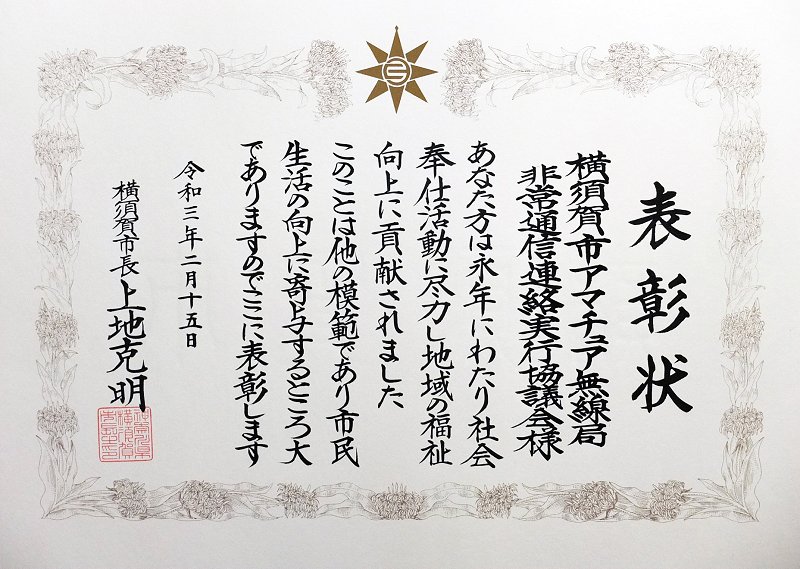 表彰状
横須賀市アマチュア無線局
非常通信連絡実行協議会様
あなた方は永年にわたり社会
奉仕活動に尽力し地域の福祉
向上に貢献されました
このことは他の模範であり市民
生活の向上に寄与するところ大
でありますのでここに表彰します
令和三年二月十五日
横須賀市長 上地克明